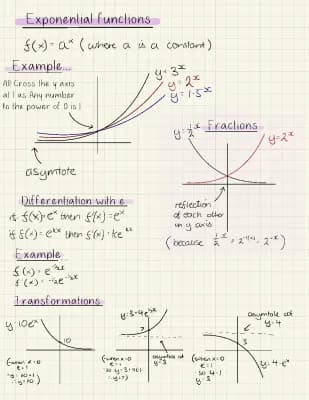 Exponential functions
f(x) = aˣ (where a is a constant)
Example...
All Cross the y axis
at 1 as Any number
to the power of 0 is 1
y = 3ˣ
y = 2ˣ
y = 1.5ˣ
asymtote
Fractions
y = ½ˣ
y = 2ˣ
reflection
of each other
in y axis
(because ½ˣ = 2⁻¹⁽ˣ⁾ = 2⁻ˣ)
Differentiation with e
if f(x) = eˣ then f'(x) = eˣ
if f(x) = eᵏˣ then f'(x) = keᵏˣ
Example
Transformations
y = 10eˣ
10
(when x=0
e = 1
∴ y = 10)
asymtote at
y = 3
∴ y = 7)
asymtote at
y = 4
3
(when x=0
e = 1
so 4-1
y = 3
y = 4-eˣ